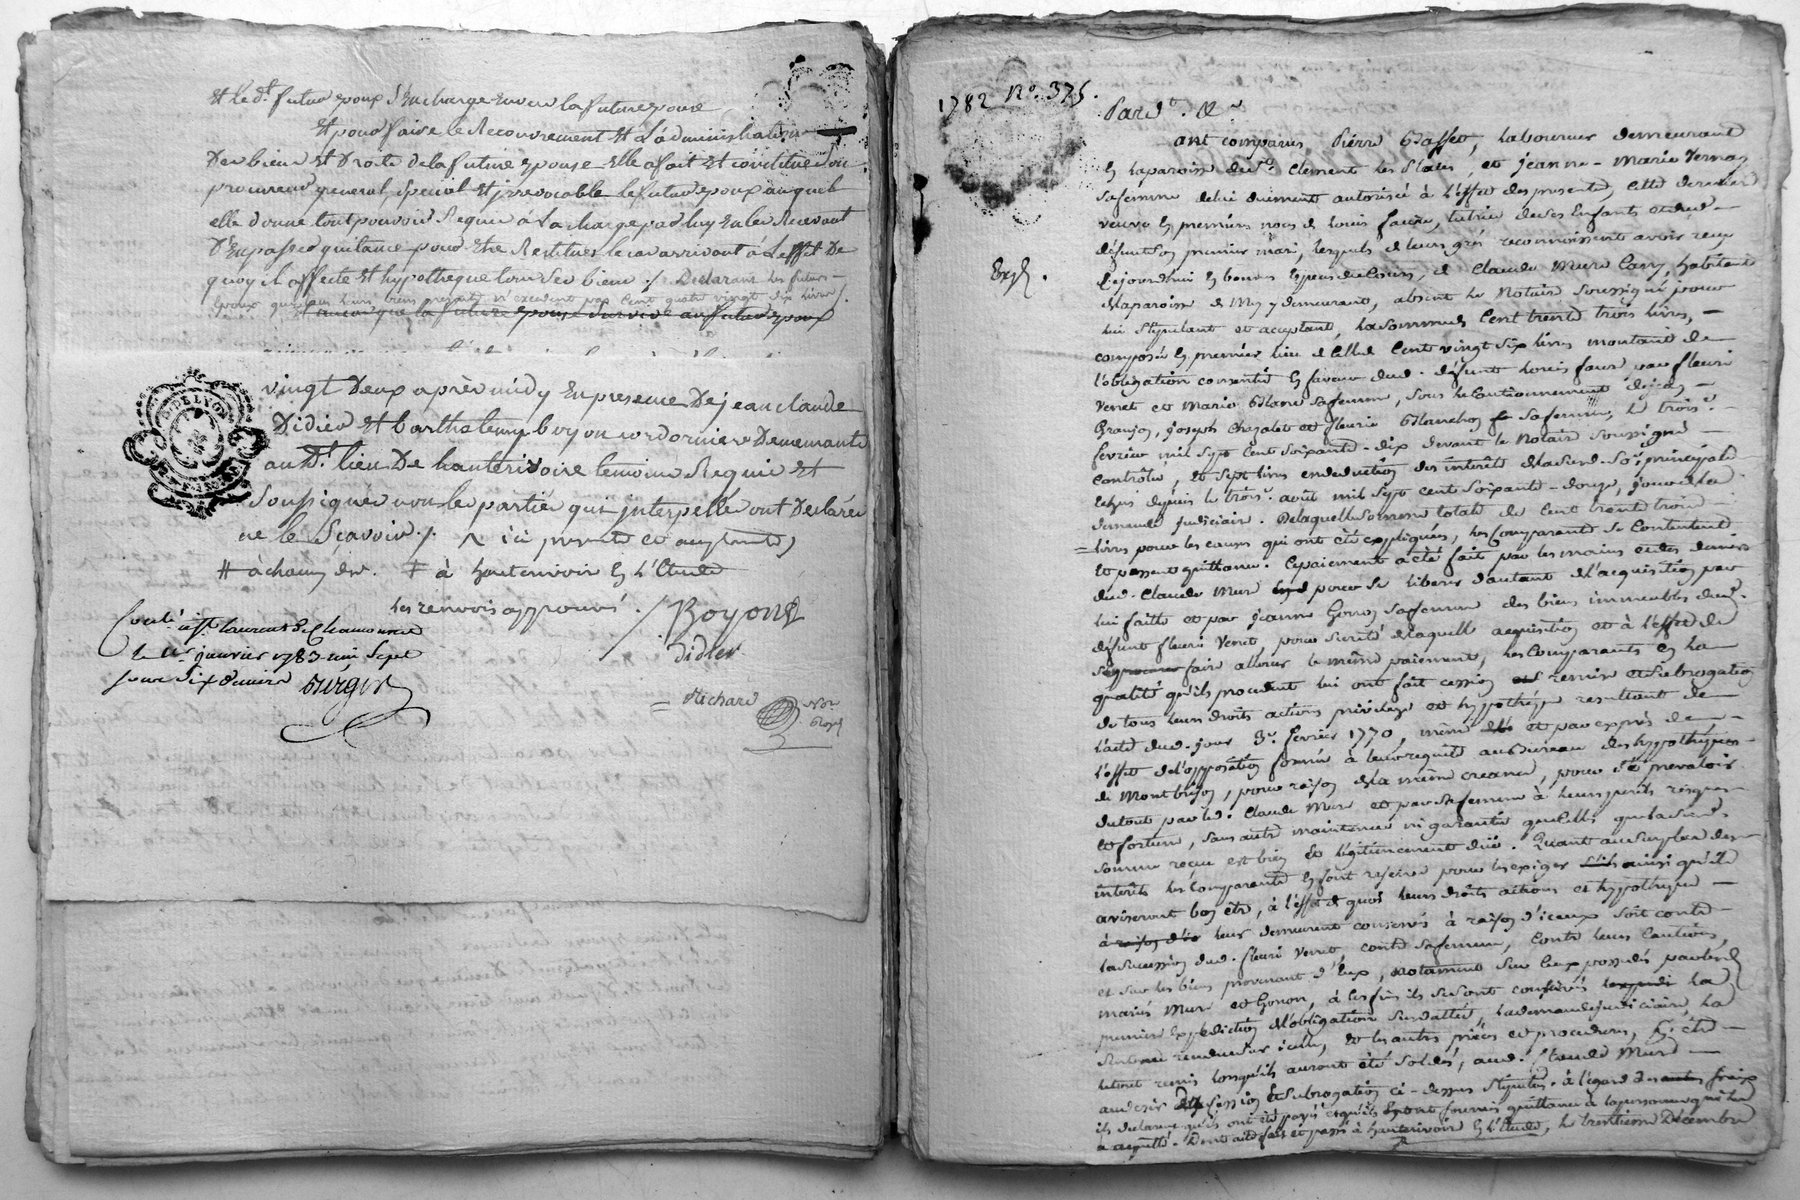 Et led.t futur epoux s'en charge envers la future epouse
Et pour faire le Recouvrement et L'administration
Des biens et Droits de la future epouse elle a fait et constitué son
procureur general, special et irrevocable le futur epoux auquel
elle donne tout pouvoir Requis à la charge par luy en les Recevant
D'en passer quittance pour etre Restitués le cas arrivant à L'effet De
quoy il affecte et hypotheque tous ses biens ./. Declarant les futurs
Epoux que tous leurs biens presents n'excedent pas Cent quatre vingt dix livres /.
et au cas que la future epouse survive au futur epoux
G. DE LYON
vingt Deux après midy En presence De jean claude
Didier Et barthelemy boyon cordonniers Demeurants
aud.t lieu De hauterivoire temoins Requis et
Soussignés non les parties qui interpellé ont Declarés
ne le Sçavoir ./. ici presente et acceptante,
# à chacun d'eux. ‡ à hauterivoir en l'Etude
les renvois approuvés. / BOYON
Didier
Conté à S.t laurent De Chamousset
le janvier 1783 Sept
pour dix deniers
Richard no.re Royal
1782 N.o 375.
Pard.t &.a
Exp.
ont comparus Pierre Basset, laboureur demeurant
en la paroisse de S.t Clement les Places, et jeanne-Marie Vernay
sa femme de lui duement autorisée à l'effet des presentes, cette derniere
veuve en premiers noces de louis faure, tutrice de ses Enfants et dud.
défunt son premier mari, lesquels de leurs grés reconnoissent avoir reçu
cejourdhui en bonnes Especes de Cours, de Claude Mure Cany, habitant
de la paroisse de Mey y demeurant, absent le Notaire soussigné pour
lui stipulant et acceptant, la somme de Cent trente trois livres,
composée en premier lieu de celle de Cent vingt Six livres montant de
l'obligation consentie en faveur dud. défunt louis faure par fleuri
Venet et Marie Blanc sa femme, sous le Cautionnement de jean
Granjon, joseph Chazalet et fleurie Blanchon sa femme, le trois.e
fevrier mil Sept Cent Soixante-dix devant le Notaire soussigné
Controlée, et Sept livres en deduction des interêts de la Susd. So.e principale
échus depuis le trois.e août mil Sept Cent Soixante-douze, jour de la
demande judiciaire. De laquelle Somme totale de Cent trente trois
livres pour les causes qui ont été expliquées, les Comparants se Contentent
et passent quittance. Ce paiement a été fait par les mains et des deniers
dud. Claude Mure pour se liberer d'autant de l'acquisition par
lui faite et par jeanne Gonon sa femme des biens immeubles dud.
défunt fleuri Venet, pour sureté de laquelle acquisition et à l'effet de
faire allouer le même paiement, les Comparants en la
qualité qu'ils procedent lui ont fait cession remise et Subrogation
de tous leurs droits actions privilege et hypotheque resultant de
l'acte dud. jour 3.e fevrier 1770, même et par exprès de
l'effet de l'opposition formée à leur requete au Bureau des hypotheques
de Montbrison, pour raison de la même creance, pour s'en prevaloir
du tout par led. Claude Mure et par sa femme à leurs perils risques
et fortune, sans autre maintenue ni garantie que celle que la Susd.
Somme reçue est bien et légitimement duë. Quant au surplus des
interêts les Comparants en font reserve pour les exiger ainsi qu'ils
aviseront bon être, à l'effet de quoi leurs droits actions et hypotheque
à raison d'ic leur demeurent conservés à raison d'iceux soit contre
la Succession dud. fleuri Venet, contre sa femme, Contre leurs Cautions,
et sur les biens provenant d'Eux, notamment sur Ceux possedés par lesd.
mariés Mure et Gonon, à ces fins ils se sont conservés la
premiere Expedition de l'obligation susdattée, la demande judiciaire, la
Sentence rendue sur icelle, et les autres pièces et procedures, p.r être
letout remis lorsqu'ils auront été soldés, aud. Claude Mure
au desir cession et Subrogation ci-dessus stipulés. à l'égard des frais
ils declarent qu'ils ont été payés
à acquitté. Dont acte fait et passé à hauterivoir en l'Etude, le trentieme Décembre